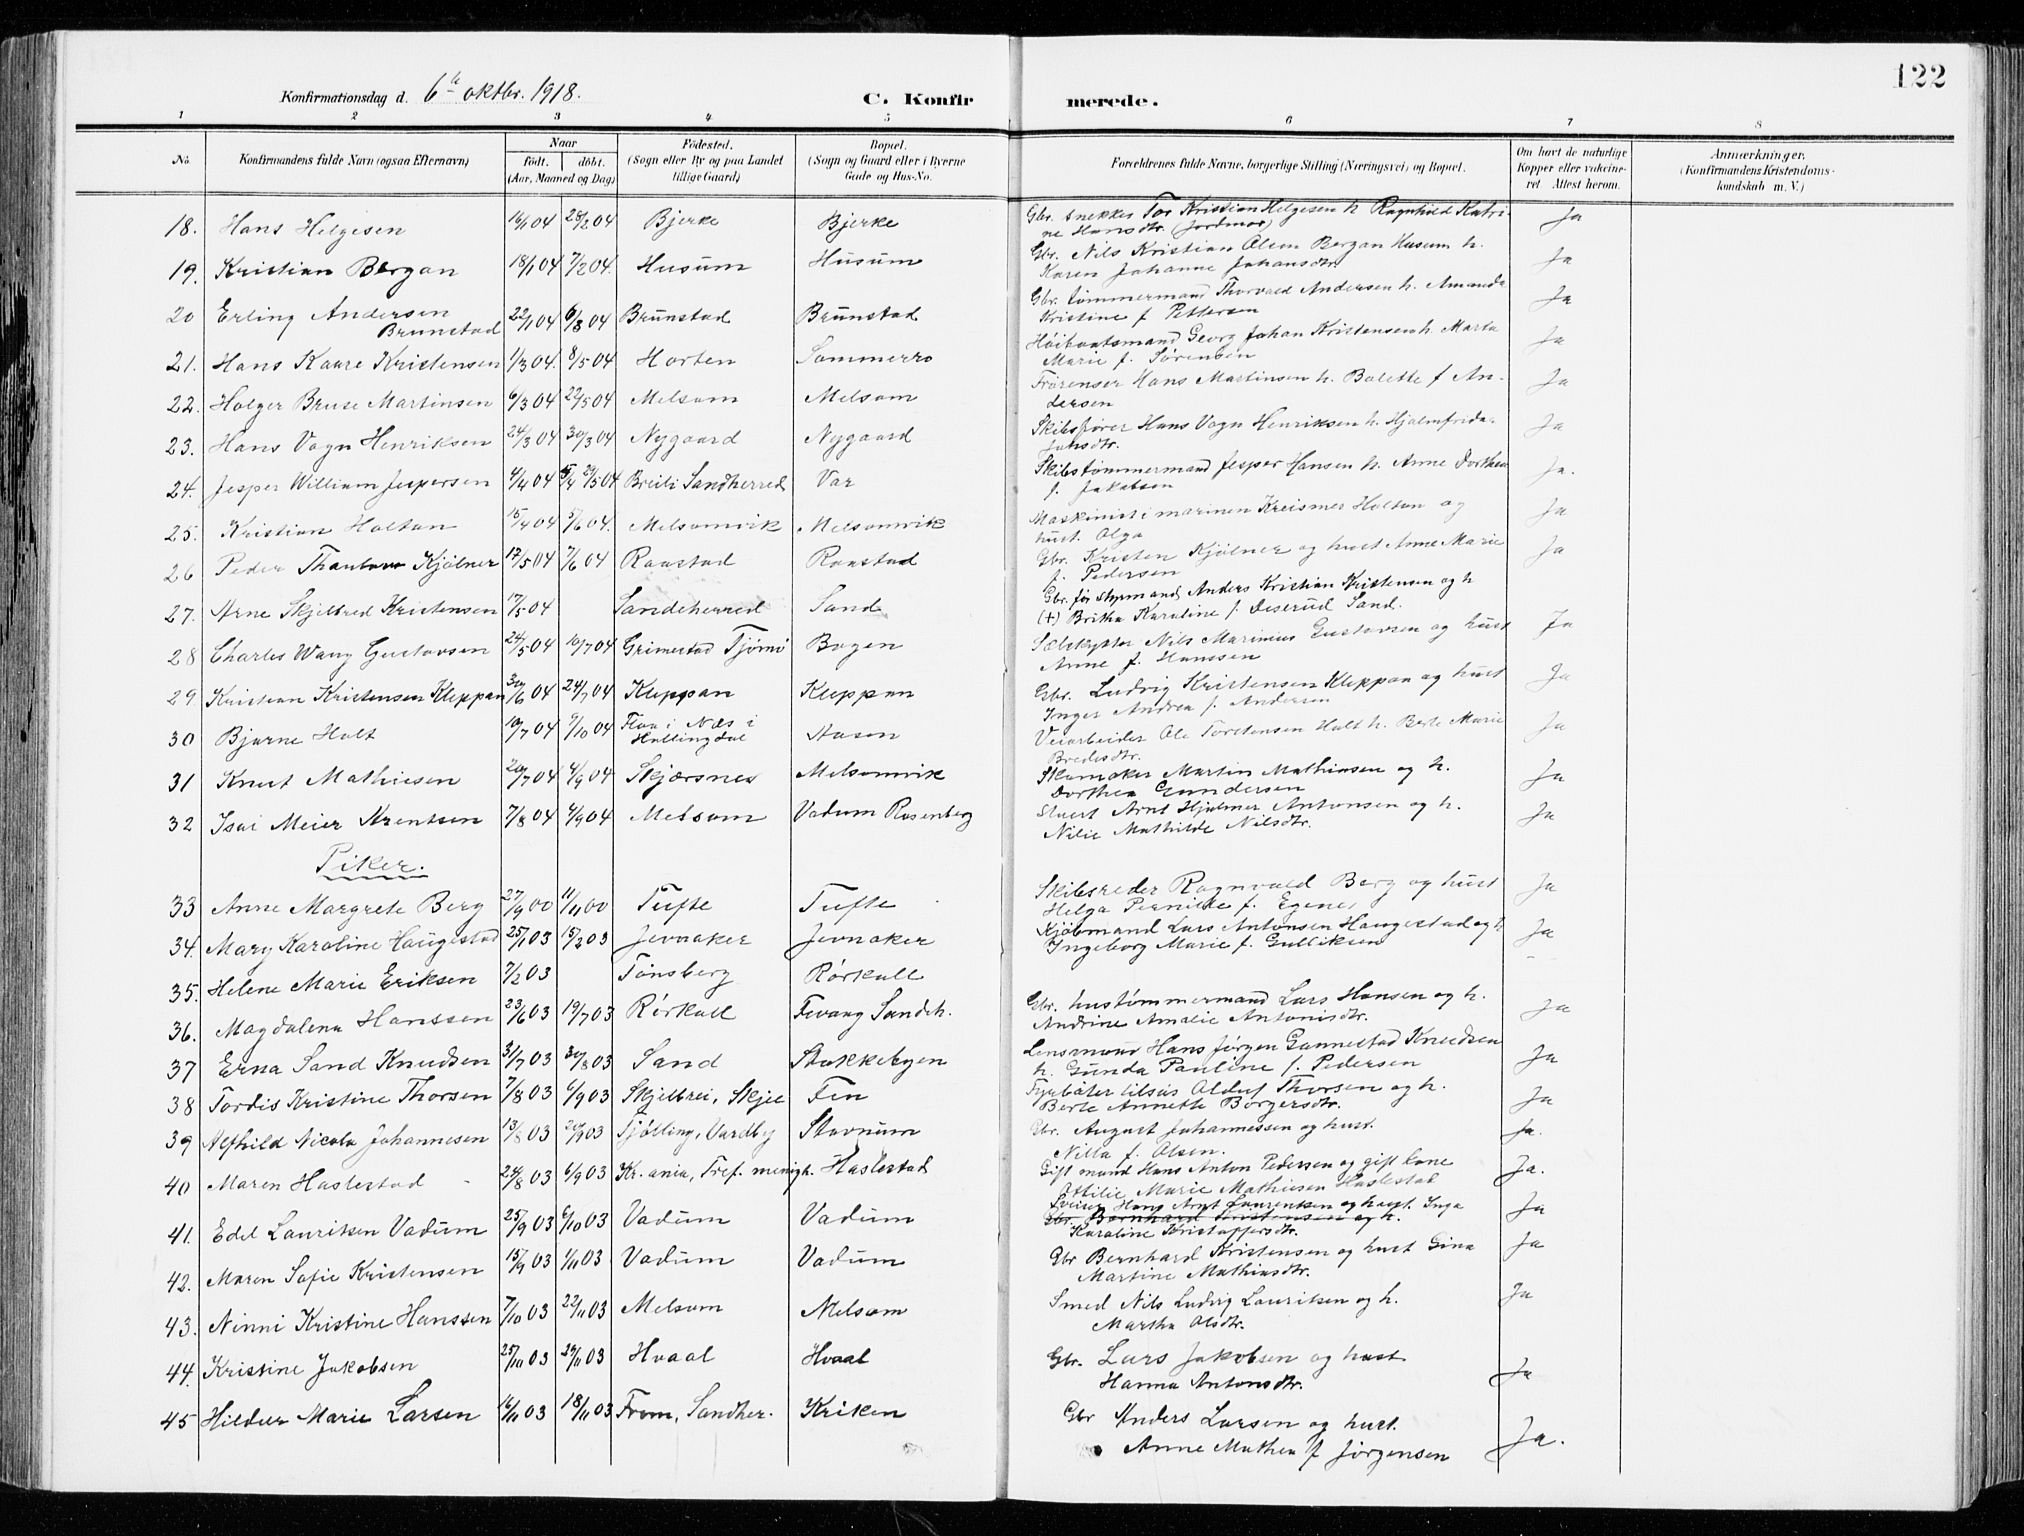 122
Konfirmationsdag d. 6te oktbr. 1918.
C. Konfirmerede.
1 2 3 4 5 6 7 8
No. Konfirmandens fulde Navn (ogsaa Efternavn) Naar født. døbt. (Aar, Maaned og Dag) Fødested. (Sogn eller By og paa Landet tillige Gaard) Bopæl. (Sogn og Gaard eller i Byerne Gade og Hus-No. Forældrenes fulde Navne, borgerlige Stilling (Næringsvei) og Bopæl. Om havt de naturlige Kopper eller vakcineret. Attest herom. Anmerkninger. (Konfirmandens Kristendomskundskab m. V.)
18. Hans Helgesen 16/1 04 28/2 04 Bjerke Bjerke Gbr. snekker Tor Kristian Helgesen h. Ragnhild Katri- Ja
ne Hansdtr. (Jordmor)
19. Kristian Bergan 18/1 04 7/2 04. Husum Husum Gbr. Nils Kristian Olsen Bergan Husum h. Ja
Karen Johanne Johansdtr.
20 Erling Andersen 22/1 04 6/8 04 Brunstad Brunstad Gbr. tømmermand Thorvald Andersen h. Amanda Ja
Brunstad Kristine f. Pettersen
21. Hans Kaare Kristensen 1/3 04. 8/5 04 Horten Sommerro Høibaatsmand Georg Johan Kristensen h. Marta Ja
Marie f. Sørensen
22. Holger Bruse Martinsen 6/3 04 22/5 04 Melsom Melsom Frørenser Hans Martinsen h. Bolette f An- Ja
dersen
23. Hans Vagn Henriksen 24/3 04 30/3 04 Nygaard Nygaard Skibsfører Hans Vagn Henriksen h. Hjalmfrida Ja
Johsdtr.
24. Jesper William Jespersen 4/4 04 29/5 04 Breili Sandherred Var Skibstømmermand Jesper Hansen h. Anne Dorthea Ja.
f. Jakobsen
25. Kristian Holtan 15/4 04 5/6 04. Melsomvik Melsomvik Maskinist i marinen Kreismer Holtan og Ja
hust. Olga
26 Peder Kjølner 17/5 04 7/6 04 Raastad Raastad Gbr. Kristen Kjølner og hust Anne Marie Ja
f. Pedersen
27. Arne Skjelbred Kristensen 17/5 04 Sandeherred Sand Gbr. før styrmand Anders Kristian Kristensen og h
(+) Britha Karoline f. Sand.
28 Charles Wang Gustavsen 24/5 04 10/7 04 Grimestad Tjømø Bogen Sælskytter Nils Marinius Gustavsen og hust Ja
Anne f. Hanssen
29. Kristian Kristensen Kleppan 30/6 04 24/7 04 Kleppan Kleppan Gbr. Ludvig Kristensen Kleppan og hust Ja
Inger Andrea f. Andersen
30 Bjarne Holt 10/7 04 9/10 04 Flaa i Næs i Aasen Veiarbeider Ole Torstensen Holt h. Berte Marie Ja
Hallingdal Bredesdtr.
31 Knut Mathiesen 20/7 04 4/9 04 Skjærsnes Melsomvik Skomaker Martin Mathiasen og h. Ja
Dorthea Gundersen
32 Isai Meier Arentsen 7/8 04 4/9 04 Melsom Vadum Rosenberg Stuert Arnt Hjalmer Antonsen og h. Ja
Nilie Mathilde Nilsdtr.
Piker.
33 Anne Margrete Berg 27/9 00 11/11 00 Tufte Tufte Skibsreder Ragnvald Berg og hust Ja
Helga Pernille f. Egenes
34. Mary Karoline Haugestad 25/1 03 15/2 03 Jevnaker Jevnaker Kjøbmand Lars Antonsen Haugestad og h Ja
Ingeborg Marie f. Gulliksen
35. Helene Marie Eriksen 7/2 03 Tønsberg Rørkoll
36. Magdalena Hanssen 23/6 03 19/7 03 Rørkoll Fevang Sandeh. Gbr. hustømmermand Lars Hansen og h. Ja
Andrine Amalie Antonisdtr.
37 Erna Sand Knudsen 31/7 03 30/8 03 Sand Stokkebyen Lensmand Hans Jørgen Gannestad Knudsen Ja
h. Gunda Pauline f. Pedersen
38 Tordis Kristine Thorsen 7/8 03 6/9 03 Skjelbrei, Skjee Fen Fyrbøter Oldus Thorsen og h. Ja
Berte Annette Borgersdtr.
39 Alfhild Nicola Johannesen 13/8 03 20/9 03 Tjølling, Vardby Stavnum Gbr. August Johannessen og hust. Ja.
Nilla f. Olsen.
40 Maren Haslestad 24/8 03 6/9 03 Kr.ania, Tref. menigh. Haslestad Gift mand Hans Anton Pedersen og gift kone Ja.
Ottilie Marie Mathiesen Haslestad
41. Edel Lauritsen Vadum 25/9 03 6/10 03 Vadum Vadum Sveiser Hans Arnt Laurentsen og hust. Inga Ja
Gbr. Bernhard Kristensen og h.
Karoline Kristoffersdtr.
42. Maren Sofie Kristensen 15/9 03 1/11 03 Vadum Vadum Gbr Bernhard Kristensen og hust Gina Ja
Martine Mathiasdtr.
43. Ninni Kristine Hanssen 7/10 03 22/11 03 Melsom Melsom Smed Nils Ludvig Lauritsen og h. Ja
Martha Olsdtr.
44. Kristine Jakobsen 25/10 03 29/11 03 Hvaal Hvaal Gbr. Lars Jakobsen og hust Ja
Hanna Antonsdtr.
45 Hildur Marie Larsen 16/11 03 18/11 03 From, Sandher. Kriken Gbr Anders Larsen og hust. Ja.
Anne Mathea f Jørgensen